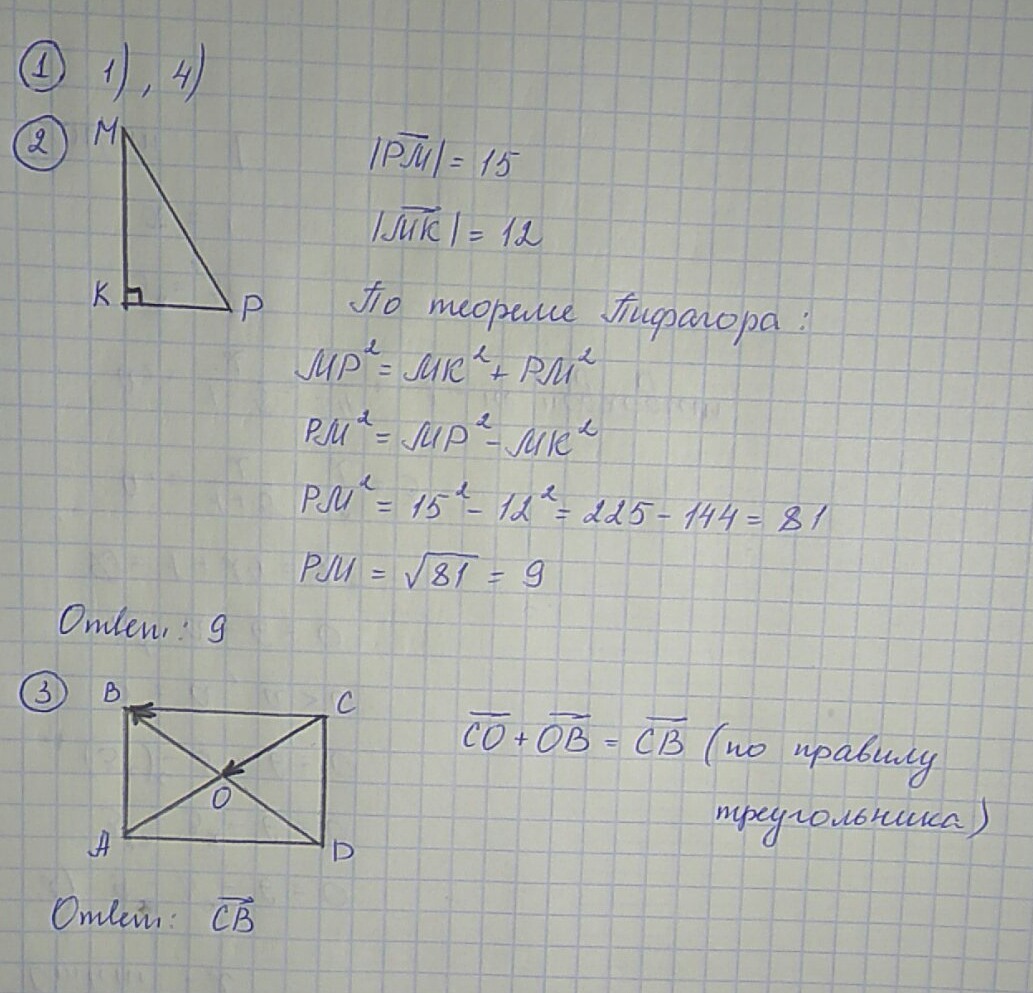 ① 1), 4)
② M
K
P
|PM̅| = 15
|M̅K̅| = 12
По теореме Пифагора:
MP² = MK² + PM²
PM² = MP² - MK²
PM² = 15² - 12² = 225 - 144 = 81
PM = √81 = 9
Ответ: 9
③ B
C
O
A
D
C̅O̅ + O̅B̅ = C̅B̅ (по правилу
треугольника)
Ответ: C̅B̅